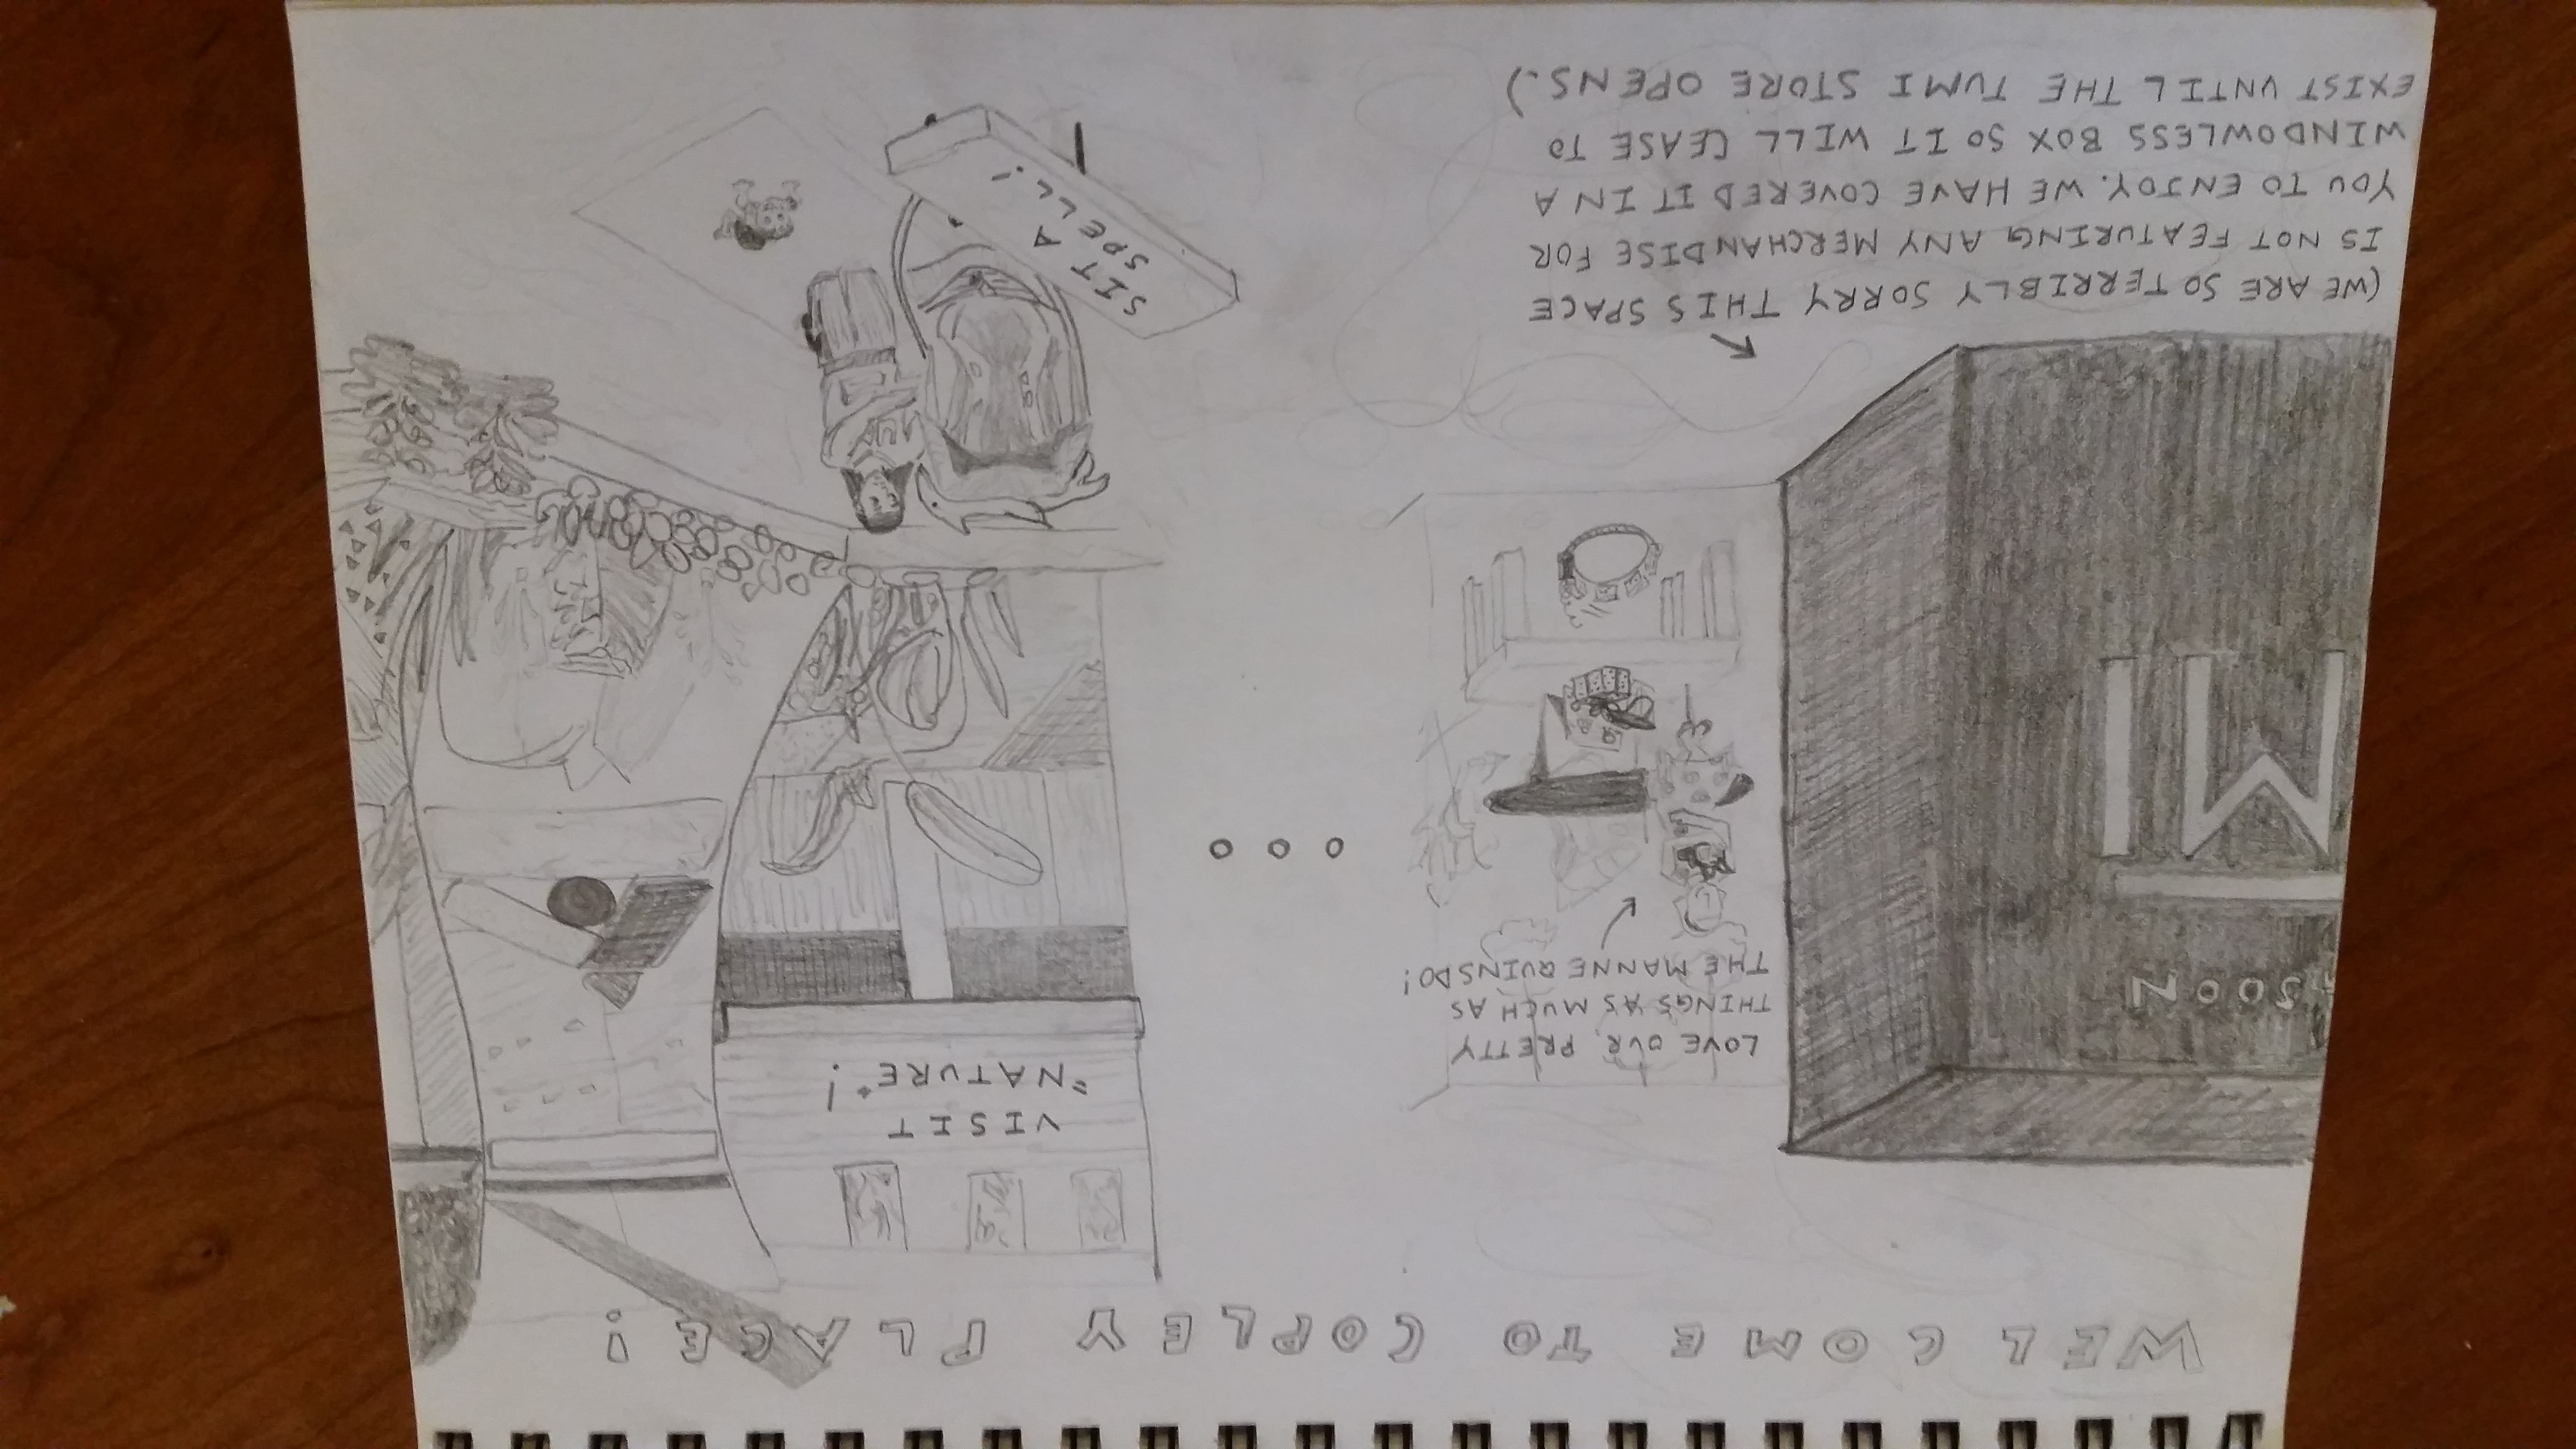 WELCOME TO COPLEY PLACE!
SOON
MI
(WE ARE SO TERRIBLY SORRY THIS SPACE
IS NOT FEATURING ANY MERCHANDISE FOR
YOU TO ENJOY. WE HAVE COVERED IT IN A
WINDOWLESS BOX SO IT WILL CEASE TO
EXIST UNTIL THE TUMI STORE OPENS.)
LOVE OUR PRETTY
THINGS AS MUCH AS
THE MANNEQUINS DO!
VISIT
"NATURE"!
SIT A
SPELL!